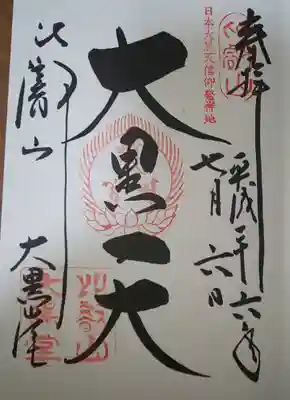 奉拝
平成二十六年
七月六日
日本大黒天信仰發祥地
大黒天
比叡山
大黒堂